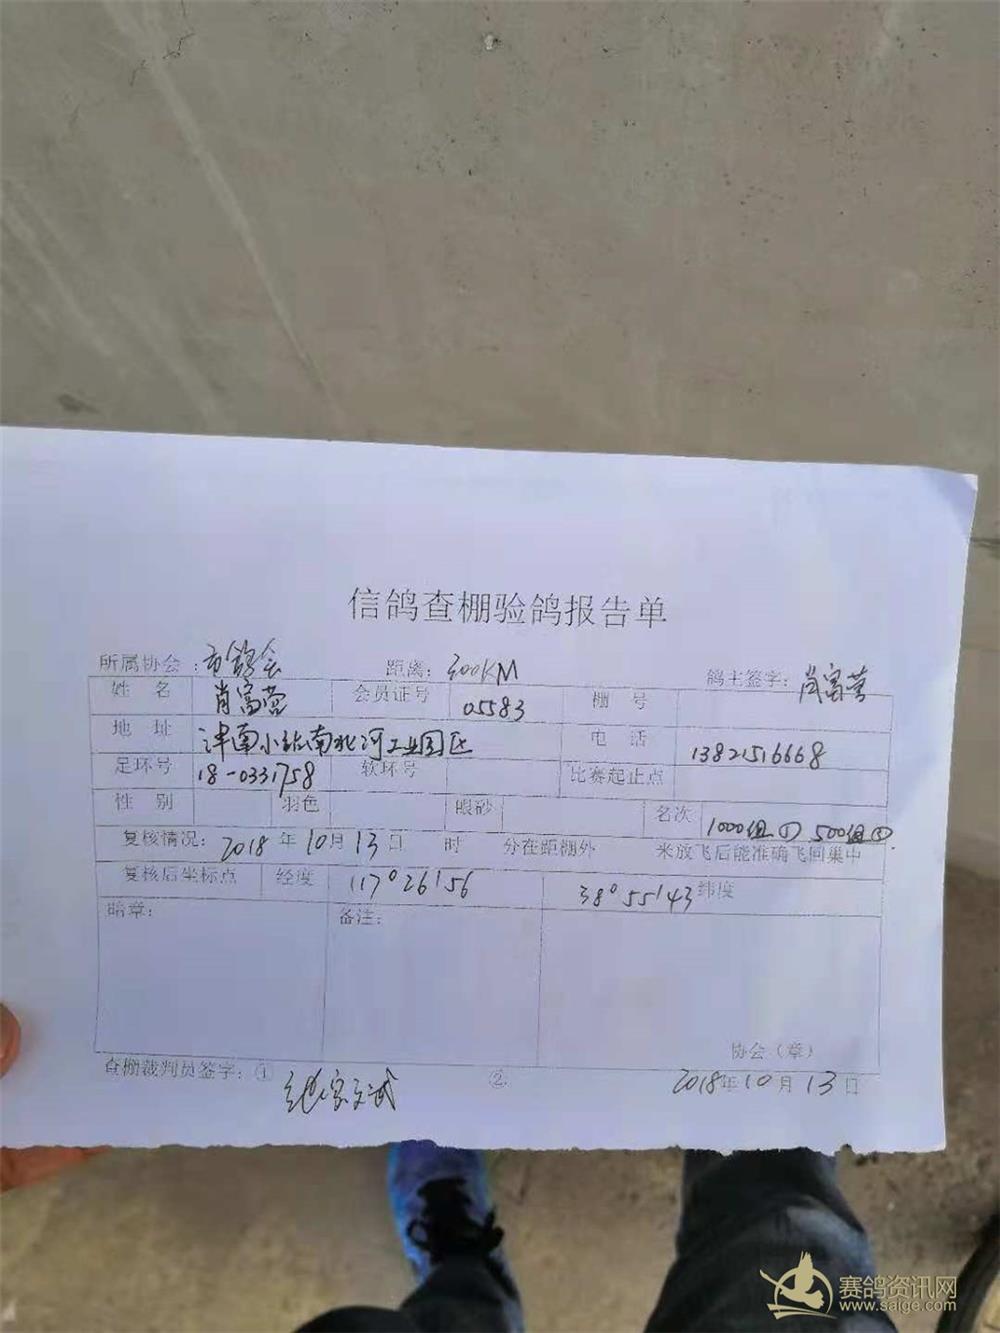 信鸽查棚验鸽报告单
所属协会：市鸽会 距离：300KM 鸽主签字：肖富营
姓 名 肖富营 会员证号 05583 棚 号
地 址 津南小站南北河工业园区 电 话 13821516668
足环号 18-0331758 软环号 比赛起止点
性 别 羽色 眼砂 名次 1000组① 500组
复核情况：2018年10月13日 时 分在距棚外 米放飞后能准确飞回巢中
复核后坐标点 经度 117°26′56 38°55′43 纬度
暗章： 备注：
协会（章）
查棚裁判员签字：① ②
2018年10月13日
赛鸽资讯网
www.saige.com